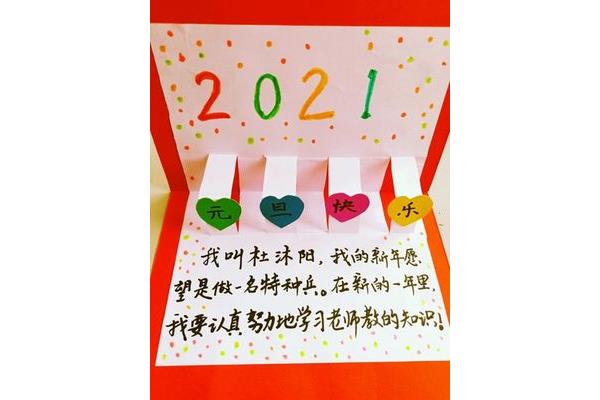 2021
元旦快乐
我叫杜沐阳,我的新年愿
望是做一名特种兵。在新的一年里,
我要认真努力地学习老师教的知识!